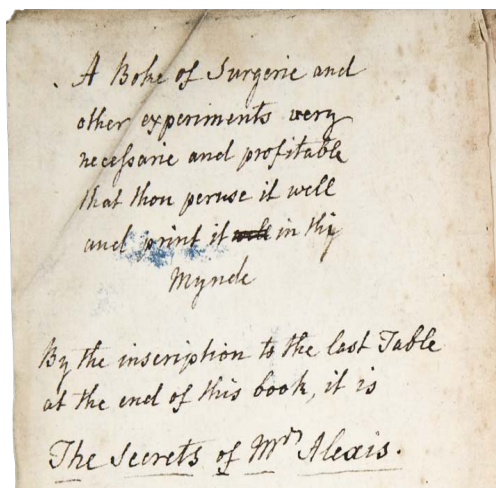 A Boke of Surgerie and
other experiments very
necessarie and profitable
that thou peruse it well
and print it in thy
Mynde
By the inscription to the last Table
at the end of this book, it is
The Secrets of Mrs Alexis.